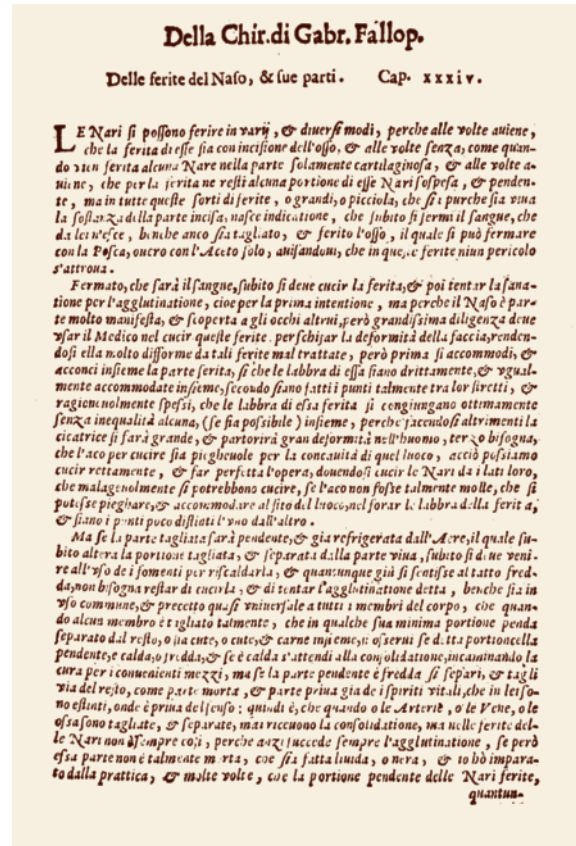 Della Chir. di Gabr. Fallop.
Delle ferite del Naso, & sue parti. Cap. xxxiv.
LE Nari si possono ferire in varij, & diuersi modi, perche alle volte auiene,
che la ferita di esse sia con incisione dell'osso, & alle volte senza, come quan-
do vien ferita alcuna Nare nella parte solamente cartilaginosa, & alle volte a-
uiene, che per la ferita ne resti alcuna portione di esse Nari sospesa, & penden-
te, ma in tutte queste sorti di ferite, o grandi, o picciola, che si purche sia viua
la sostanza della parte incisa, nasce indicatione, che subito si fermi il sangue, che
da lei n'esce, benche anco sia tagliato, & ferito l'osso, il quale si può fermare
con la Posca, ouero con l'Aceto solo, auisandoui, che in queste ferite niun pericolo
s'attroua.
Fermato, che sarà il sangue, subito si deue cucir la ferita, & poi tentar la sana-
tione per l'agglutinatione, cioe per la prima intentione, ma perche il Naso è par-
te molto manifesta, & scoperta a gli occhi altrui, però grandissima diligenza deue
vsar il Medico nel cucir queste ferite. per schifar la deformità della faccia, renden-
dosi ella molto difforme da tali ferite mal trattate, però prima si accommodi, &
acconci insieme la parte ferita, si che le labbra di essa siano drittamente, & vgual-
mente accommodate insieme, secondo siano fatti i punti talmente tra lor stretti, &
ragioneuolmente spessi, che le labbra di essa ferita si congiungano ottimamente
senza inequalità alcuna, (se sia possibile) insieme, perche facendosi altrimenti la
cicatrice si farà grande, & partorirà gran deformità nell'huomo, terzo bisogna,
che l'aco per cucire sia pieghеuole per la concauità di quel luoco, acciò possiamo
cucir rettamente, & far perfetta l'opera, douendosi cucir le Nari da i lati loro,
che malageuolmente si potrebbono cucire, se l'aco non fosse talmente molle, che si
potesse pieghare, & accommodare al sito del luoco, nel forar le labbra della ferita,
& siano i punti poco distiati l'vno dall'altro.
Ma se la parte tagliata sarà pendente, & gia refrigerata dall'Aere, il quale su-
bito altera la portione tagliata, & separata dalla parte viua, subito si due veni-
re all'vso de i fomenti per riscaldarla, & quantunque già si sentisse al tatto fred-
da, non bisogna restar di cucirla, & di tentar l'agglutinatione detta, benche sia in
vso commune, & precetto quasi vniuersale a tutti i membri del corpo, che quan-
do alcun membro è tagliato talmente, che in qualche sua minima portione penda
separato dal resto, o sia cute, o cute, & carne insieme, si osserui se detta portioncella
pendente, e calda, o fredda, & se è calda s'attendi alla consolidatione, incaminando la
cura per i conuenienti mezzi, ma se la parte pendente è fredda si separi, & tagli
via del resto, come parte morta, & parte priua gia de i spiriti vitali, che in lei so-
no estinti, onde è priua del senso: quindi è, che quando o le Arterie, o le Vene, o le
ossa sono tagliate, & separate, mai riceuono la consolidatione, ma nelle ferite del-
le Nari non è sempre così, perche anzi succede sempre l'agglutinatione, se però
essa parte non è talmente morta, che sia fatta liuida, o nera, & io hò impara-
to dalla prattica, & molte volte, che la portione pendente delle Nari ferite,
quantun-